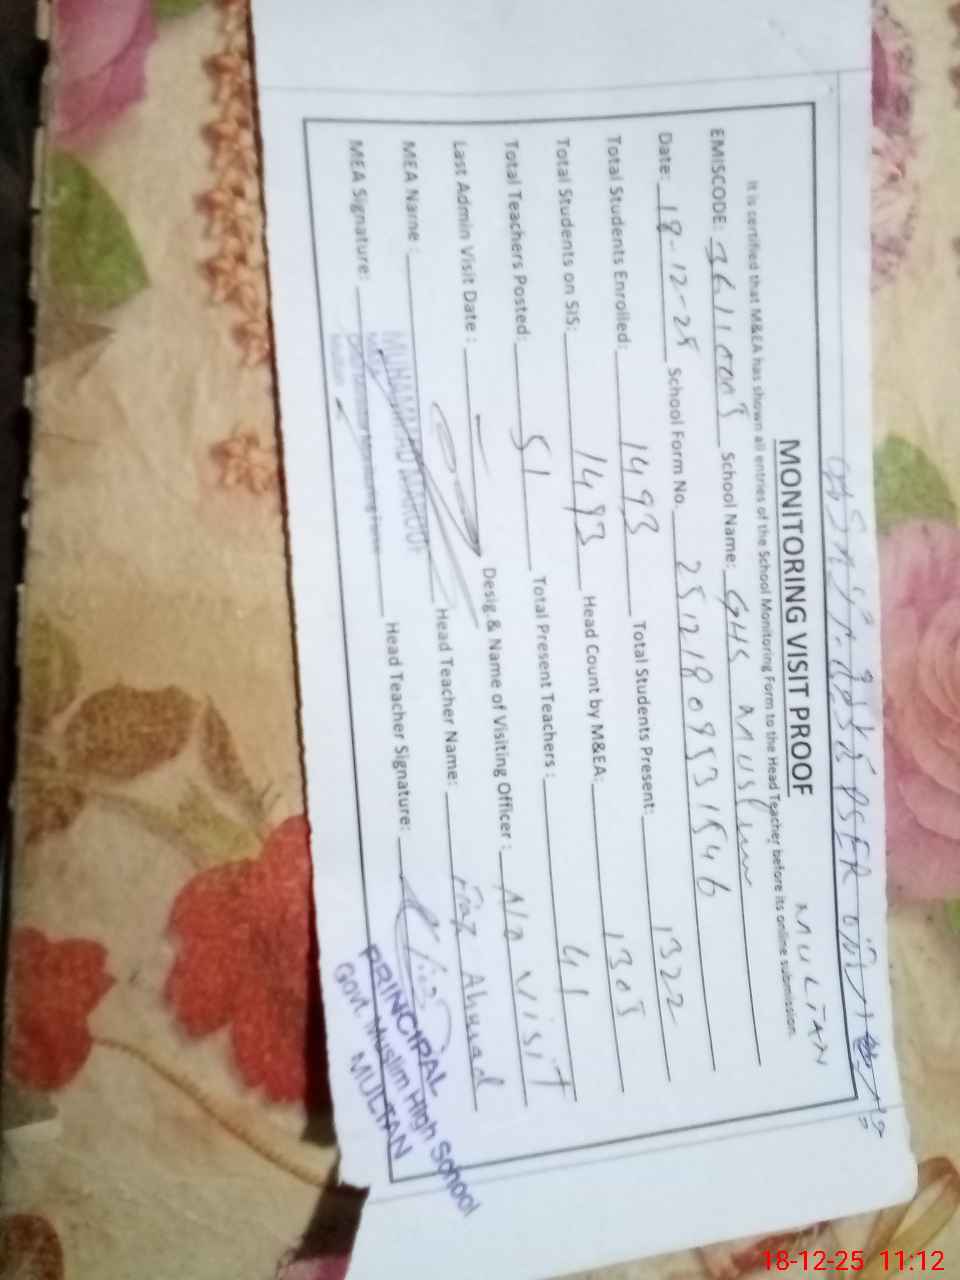 MONITORING VISIT PROOF
MULTAN
It is certified that M&EA has shown all entries of the School Monitoring Form to the Head Teacher before its online submission.
EMISCODE: School Name: GHS Muslim
Date: 18-12-25 School Form No. 25121809531546
Total Students Enrolled: 1493 Total Students Present: 1322
Total Students on SIS: 1493 Head Count by M&EA: 1305
Total Teachers Posted: 51 Total Present Teachers: 41
Last Admin Visit Date: — Desig & Name of Visiting Officer: No visit
MEA Name: Head Teacher Name: Ahmad
MEA Signature: Head Teacher Signature:
MUHAMMAD MAROOF
PRINCIPAL
Govt. Muslim High School
MULTAN
18-12-25 11:12